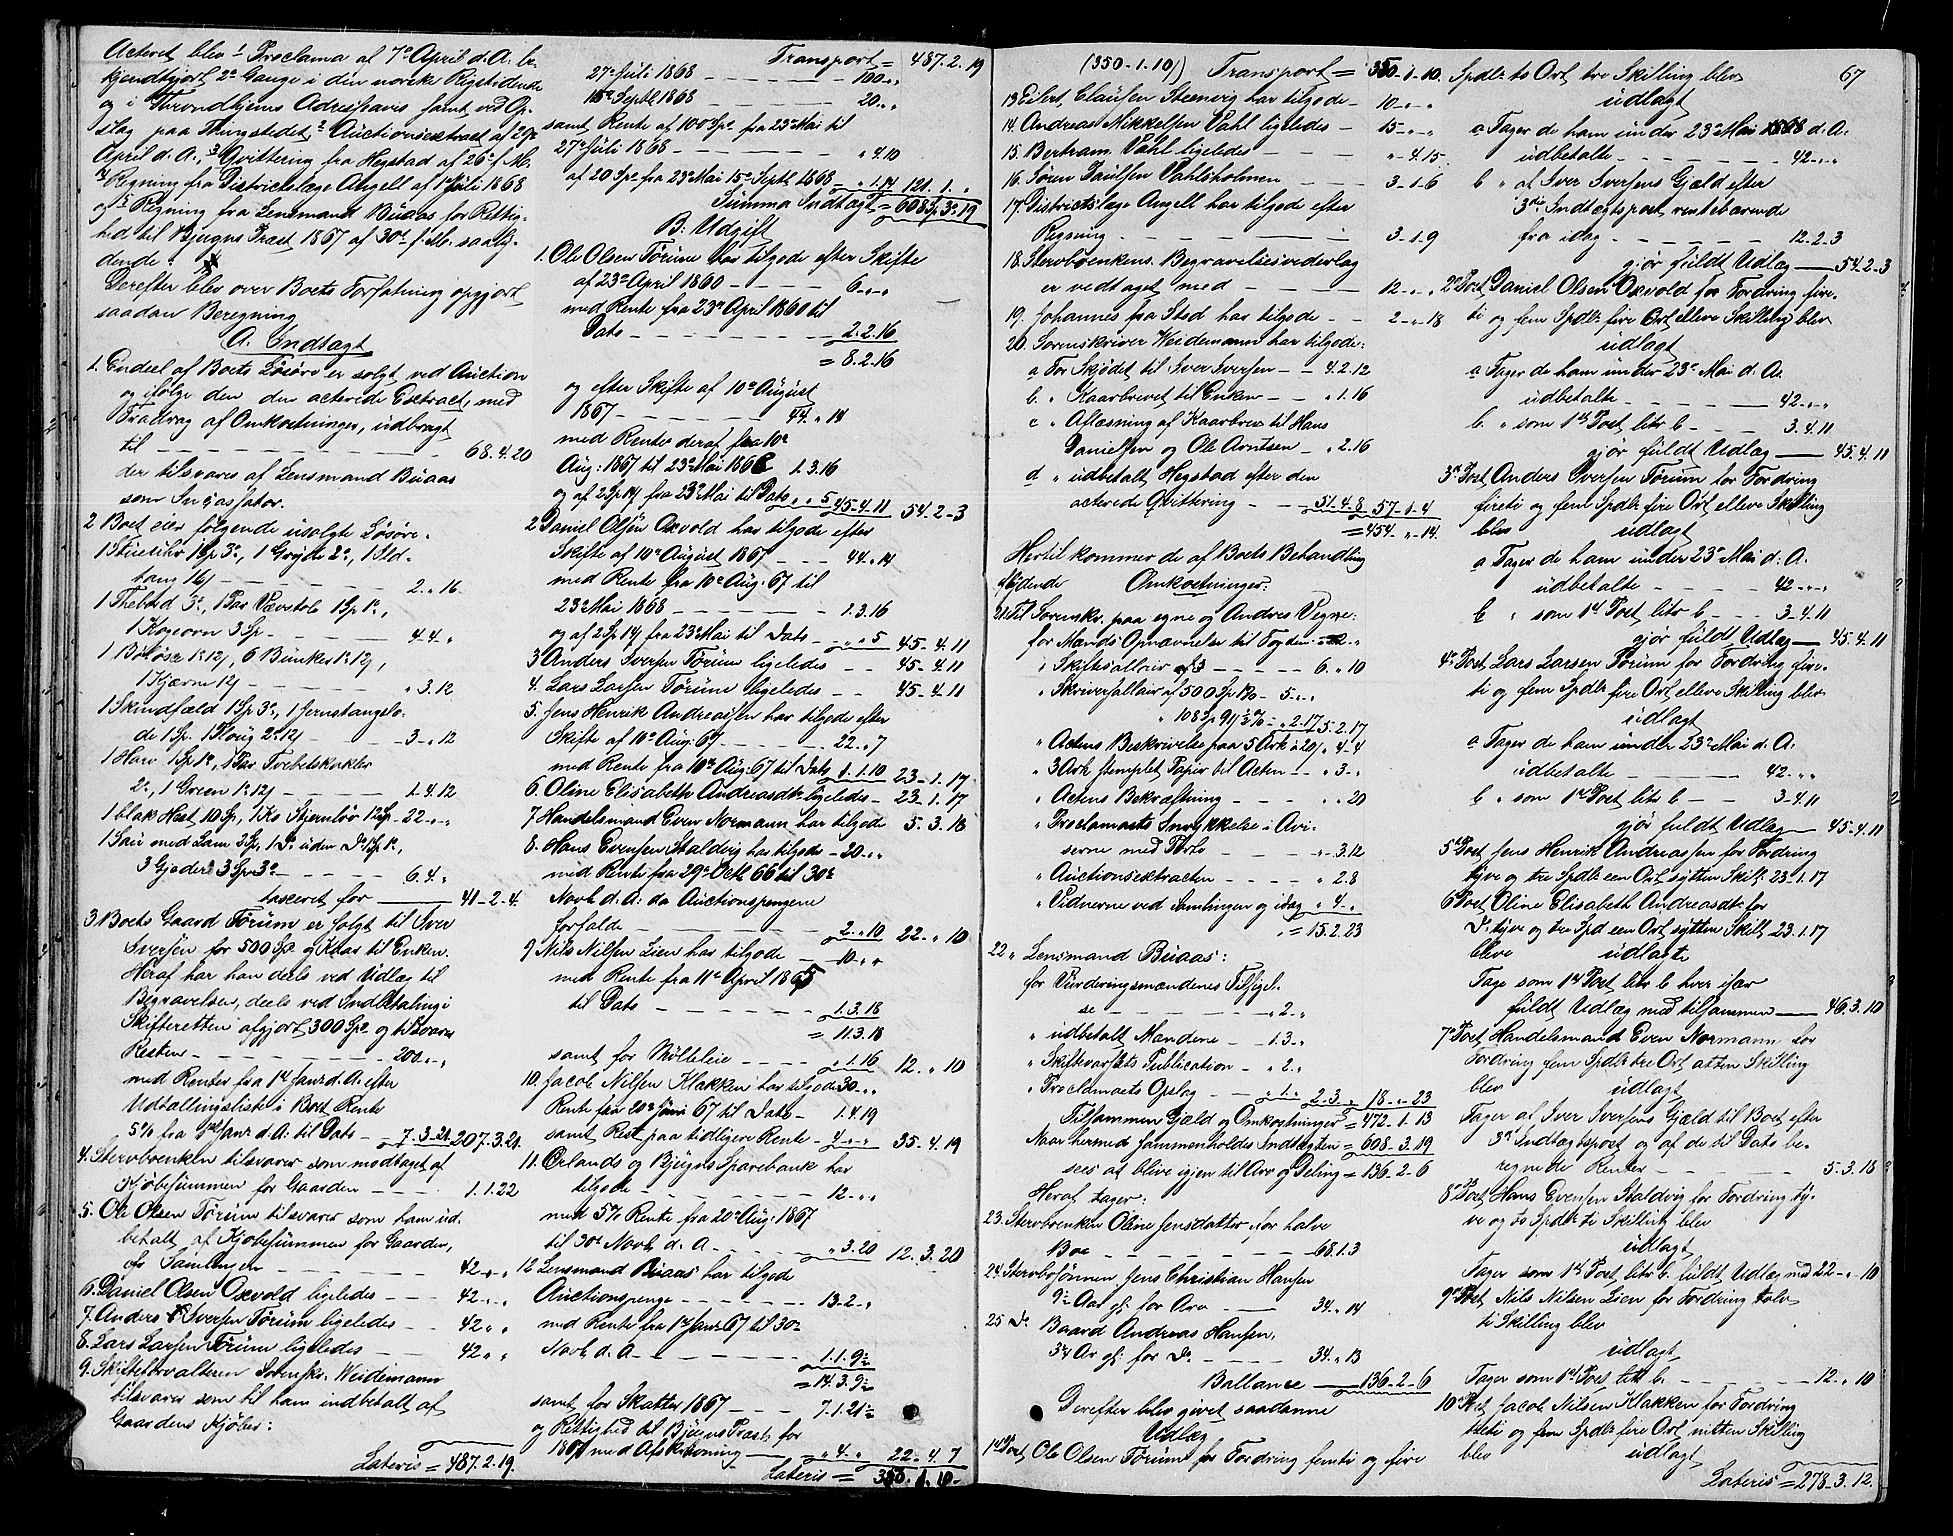 Acteret blev 1 Proclama af 7de April d. A. be-
kjendtgjort 2de Gange i den norske Rigstidende
og i Throndhjems Adresseavis samt ved Op-
slag paa Thingstedet, 2 Auctionsextract af 29de
April d. A., 3 Qvittering fra Hegstad af 26de f. M.
4 Regning fra Districtslæge Angell af 1ste Juli 1868
og 5 Regning fra Lensmand Büaas for Rettig-
hed til Bjugns Præst 1867 af 30te f. M. saaly-
dende:
Derefter blev over Boets Forfatning opgjort
saadan Beregning
A. Indtægt
1. Endeel af Boets Løsøre er solgt ved Auction
og ifølge den den acterede Extract, med
Fradrag af Omkostninger, udbragt
til 68. 4. 20
der tilsvares af Lensmand Büaas
som Incassator.
2 Boet eier følgende usolgte Løsøre:
1 Stueuhr 1 Sp 3 o, 1 Gryde 2 o, 1 Ild-
tang 16 s 2. " 16
1 Thebord 3 o, 1 Par Vævstole 1 Sp 1 o,
1 Kogeovn 3 Sp 4. 4. "
1 Bøløse 1 o 12 s, 6 Bunker 1 o 12 s,
1 Kjærne 12 s " 3. 12
1 Skindfæld 1 Sp 3 o, 1 Jernstangslæ-
de 1 Sp 1 Korig 2 o 12 s 3. " 12
1 Harv 1 Sp 1 o, 1 Par
2 o, 1 Green 1 o 12 s 1. 4. 12
1 blak Hest 10 Sp, 1 Ko Stjernlør 12 Sp 22. " "
1 Sau med Lam 2 Sp, 1 Do uden Do 1 Sp 1 o,
3 Gjeder 3 Sp 3 o 6. 4. "
taxeret for 41 - 2 - 4.
3. Boets Gaard Tørum er solgt til Iver
Iversen for 500 Sp og Kaar til Enken.
Heraf har han deels ved Udlæg til
Begravelsen, deels ved Indbetaling i
Skifteretten afgjort 300 Spd og tilsvarer
Resten 200. " "
med Renter fra 1ste Janr d. A. efter
Udtallingsliste i Boet Rente
5 % fra 1ste Janr d. A. til Dato 7. 3. 21. 207. 3. 21.
4. Stervboenken tilsvarer som modtaget af
Kjøbesummen for Gaarden 1. 1. 22
5. Ole Olsen Tørum tilsvarer som ham ud-
betalt af Kjøbesummen for Gaarden,
ifr Samlingen 42 - " "
6. Daniel Olsen Oxvold ligeledes 42 - " "
7. Anders Iversen Tørum ligeledes 42 " "
8. Lars Larsen Tørum ligeledes 42 " "
9. Skifteforvalteren Sorenskr. Weidemann
tilsvarer som til ham indbetalt af
Gaardens Kjøber:
Lateris = 487. 2. 19.
Transport = 487. 2. 19
27de Juli 1868 100. "
15de Septbr 1868 20. "
samt Rente af 100 Spd fra 23de Mai til
27de Juli 1868 " 4. 10
af 20 Spd fra 23de Mai 15de Septbr 1868 " 1. 14 121. 1. "
Summa Indtægt = 608 Sp. 3. 19
B. Udgift
1. Ole Olsen Tørum har tilgode efter Skifte
af 23de April 1860 6. " "
med Rente fra 23de April 1860 til
Dato 2. 2. 16
= 8. 2. 16
og efter Skifte af 10de August
1867 44. " 14
med Renter deraf fra 10de
Aug: 1867 til 23de Mai 1868 1. 3. 16
og af 2 Sp 14 s fra 23de Mai til Dato " " 5 45. 4. 11 54 - 2 - 3
2 Daniel Olsen Oxvold har tilgode efter
Skifte af 10de August 1867 44. " 14
med Rente fra 10de Aug: 67 til
23de Mai 1868 1. 3. 16
og af 2 Sp 14 s fra 23de Mai til Dato " " 5 45. 4. 11
3 Anders Iversen Tørum ligeledes 45 - 4. 11
4. Lars Larsen Tørum ligeledes 45 - 4. 11
5. Jens Henrik Andreassen har tilgode efter
Skifte af 10de Aug: 67 22. " 7
med Rente fra 10de Aug: 67 til Dato 1. 1. 10 23 - 1. 17.
6. Oline Elisabeth Andreasdtr ligeledes 23 - 1. 17
7 Handelsmand Even Normann har tilgode 5. 3. 18
8. Hans Evensen Staldvig har tilgode 20. " "
med Rente fra 29de Octbr 66 til 30te
Novbr d. A. da Auctionspengene
forfalde 2. " 10 22. " 10
9 Nils Nilsen Lien har tilgode 10. " "
med Rente fra 11te April 1865
til Dato 1. 3. 18
= 11. 3. 18
samt for Mølleleie " 1. 16 12. " 10
10. Jacob Nilsen Klakken har tilgode 30. " "
Rente fra 20de Juni 67 til Dato 1. 4. 19
samt Rest paa tidligere Rente 4. " " 35. 4. 19
11. Ørlands og Bjugns Sparebank har
tilgode 12. " "
med 5 % Rente fra 20de Aug: 1867
til 30te Novbr d. A. " 3. 20 12. 3. 20
12 Lensmand Büaas har tilgode
Auctionspenge 13. 2. "
med Rente fra 1ste Janr 67 til 30te
Novb. d. A. 1. 1. 9½
= 14. 3. 9½
samt for Skatter 1867 7. 1. 21½
og Rettighed til Bjugns Præst for
1867 med Afskrivning " 4. " 22. 4. 7
Lateris = 350. 1. 10.
67
(350 - 1. 10) Transport = 350. 1. 10.
13 Eilert Clausen Steenvig har tilgode 10. " "
14. Andreas Nikkelsen Vahl ligeledes 15. " "
15. Bertram Vahl ligeledes " 4. 15.
16. Søren Paulsen Vahlsholmen 3. 1. 6
17. Districtslæge Angell har tilgode efter
Regning 3. 1. 9
18. Stervboenkens Begravelsesvederlag
er vedtaget med 12. " "
19. Johannes fra Stad har tilgode 2. " 18
20. Sorenskriver Weidemann har tilgode:
a For Skjødet til Iver Iversen 4. 2. 12
b. " Kaarbrevet til Enken " 1. 16
c " Aflæsning af Kaarbrev til Hans
Danielsen og Ole Arntsen " 2. 16
d " udbetalt Hegstad efter den
acterede Qvittering 51. 4. 8 57. 1. 4
= 454. " 14.
Hertil kommer de af Boets Behandling
flydende Omkostninger:
21. Til Sorenskr. paa egne og Andres Vegne:
for Mænds Opnævnelse til Fogden " 2. "
" Skiftesallair af 3 6. " 10
" Skriversallair af 500 Sp 1 % 5. "
" 108 Sp 91 s ½ % " 2. 17 5. 2. 17
" Actens Beskrivelse paa 5 Ark à 20 s " 4. 4
" 3 Ark stemplet Papir til Acten " 3. "
" Actens Bekræftning " " 20
" Proclamaets Indrykkelse i Avi-
serne med Porto " 3. 12
" Auctionsextracten " 2. 8
" Vidnerne ved Samlingen og idag " 4. "
= 15. 2. 23
22 " Lensmand Büaas:
for Vurderingsmændenes Tilsigel-
se " 2. "
" udbetalt Mændene 1. 3. "
" Skiftevarslets Publication " 2. "
" Proclamaets Opslag " 1. " 2. 3. " 18. " 23
Tilsammen Gjæld og Omkostninger = 472 - 1. 13
Naar hermed sammenholdes Indtægten = 608. 3. 19
sees at blive igjen til Arv og Deling = 136 - 2 - 6
Heraf tager:
23. Stervboenken Oline Jensdatter for halve
Boe 68. 1. 3
24. Stervbosønnen Jens Christian Hansen
9½ Aar gl: for Arv 34. " 14
25 Do Baard Andreas Hansen,
3¾ Ar gl: for Do 34. " 13
Ballance 136 - 2 - 6
Derefter blev givet saadanne
Udlæg
1ste Post, Ole Olsen Tørum for Fordring femti og fire
Spdlr to Ort tre Skilling blev
udlagt
a Tager de ham under 23de Mai 1868 d. A.
udbetalte 42. " "
b " af Iver Iversens Gjæld efter
3die Indtægtspost rentebærende
fra idag 12. 2. 3
gjør fuldt Udlæg 54. 2 - 3
2den Post, Daniel Olsen Oxvold for Fordring fire-
ti og fem Spdlr fire Ort elleve Skilling blev
udlagt
a Tager de ham under 23de Mai d. A.
udbetalte 42. " "
b. " som 1ste Post litr b 3. 4. 11
gjør fuldt Udlæg 45. 4. 11
3die Post, Anders Iversen Tørum for Fordring
fireti og fem Spdlr fire Ort elleve Skilling
blev udlagt
a Tager de ham under 23de Mai d. A.
udbetalte 42. " "
b " som 1ste Post litr b 3. 4. 11
gjør fuldt Udlæg 45. 4. 11
4de Post, Lars Larsen Tørum for Fordring fire-
ti og fem Spdlr fire Ort elleve Skilling blev
udlagt
a Tager de ham under 23de Mai d. A.
udbetalte 42. " "
b " som 1ste Post litr b 3. 4. 11
gjør fuldt Udlæg 45. 4. 11
5te Post Jens Henrik Andreassen for Fordring
tyve og tre Spdlr een Ort sytten Skill. 23. 1. 17
6te Post, Oline Elisabeth Andreasdtr for
Do tyve og tre Spd een Ort sytten Skill. 23. 1. 17
bleve udlagte
Tage som 1ste Post litr b hver især
fuldt Udlæg med tilsammen 46. 3. 10
7de Post Handelsmand Even Normann for
Fordring fem Spdlr tre Ort atten Skilling
blev udlagt
Tager af Iver Iversens Gjæld til Boet efter
3die Indtægtspost og af de til Dato be-
regnede Renter 5. 3. 18
8de Post Hans Evensen Staldvig for Fordring ty-
ve og to Spdlr ti Skilling blev
udlagt
Tager som 1ste Post litr b. fuldt Udlæg med 22. " 10
9de Post, Nils Nilsen Lien for Fordring tolv
ti Skilling blev
udlagt
Tager som 1ste Post litr b. 12. " 10
10de Post, Jacob Nilsen Klakken for Fordring
treti og fem Spdlr fire Ort nitten Skilling
blev udlagt
Lateris = 278. 3. 12.